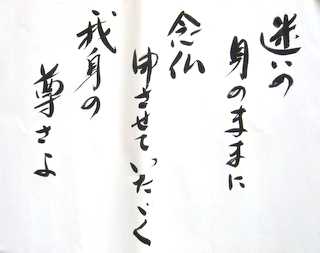 迷いの
身のままに
念仏
申させていたゞく
我身の
尊さよ